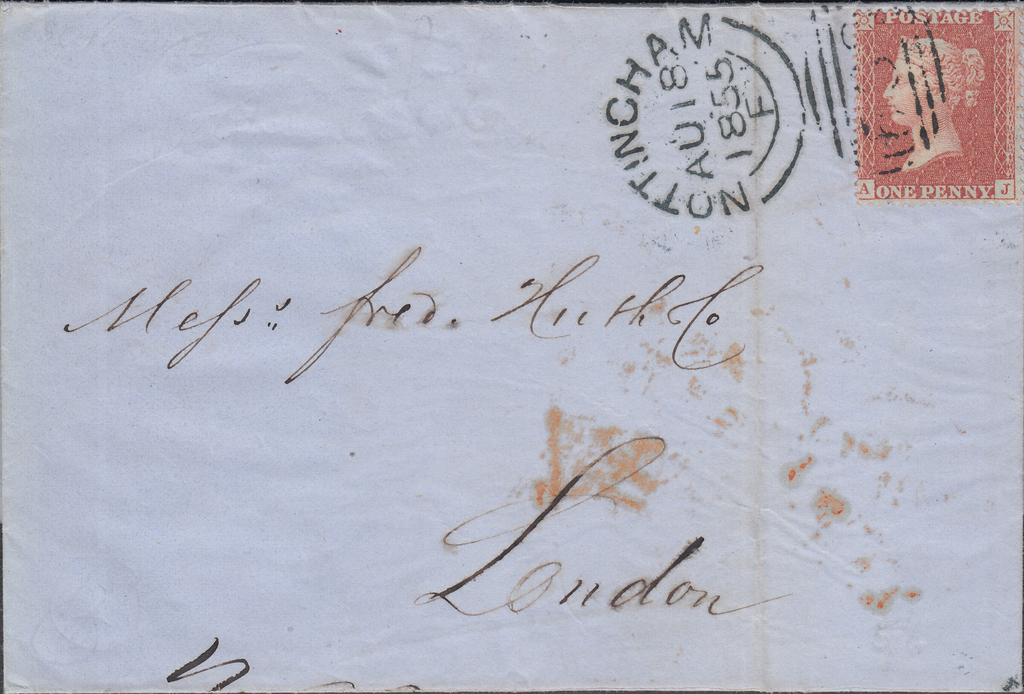 NOTTINGHAM
AU 18
1855
F
POSTAGE
A ONE PENNY J
Mess.rs fred. Huth Co
London